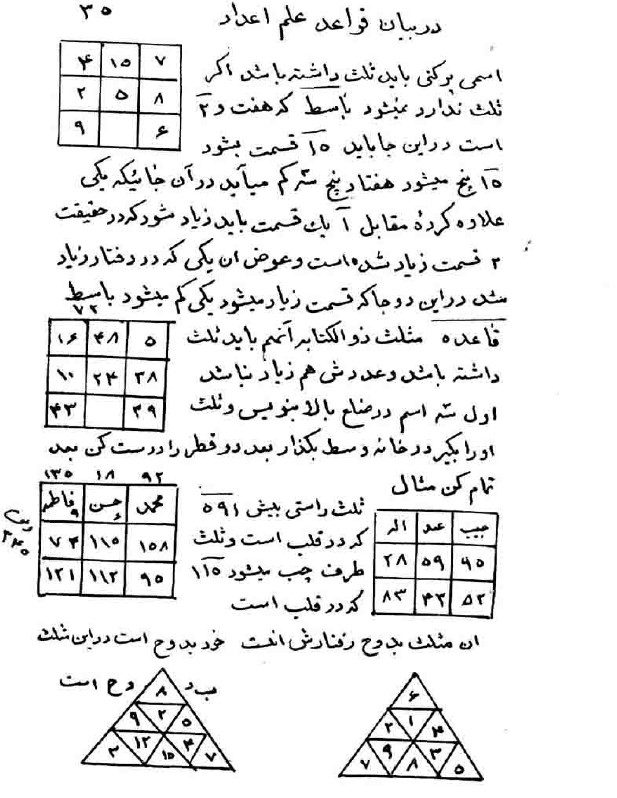 ۳۵
در بیان قواعد علم اعداد
۴ ۱۵ ۷
۲ ۵ ۸
۹ ۶
اسمی پر کنی باید ثلث داشته باشد اگر
ثلث ندارد نمیشود باسط که هفت و ۲
است در این جا باید ۱۵ قسمت بشود
۱۵ پنج میشود هفتاد پنج سه کم میآید در آن خانیکه یکی
علاوه کردهٔ مقابل آ یک قسمت باید زیاد شود که در حقیقت
۲ قسمت زیاد شده است و عوض ان یکی که در رفتار زیاد
شد در این دو جا که قسمت زیاد میشود یکی کم میشود باسط
۷۲
۱۶ ۴۸ ۵
۱۰ ۲۴ ۳۸
۴۳ ۲۹
قاعده مثلث ذوالکتابه آنهم باید ثلث
داشته باشد و عددش هم زیاد نباشد
اول سه اسم در ضلع بالا بنویس و ثلث
او را بگیر در خانه وسط بگذار بعد دو قطر را درست کن بعد
تمام کن مثال
۱۳۵ ۱۸ ۹۲
فاطمه حسن محمد
۷۴ ۱۱۵ ۱۵۸
۱۲۱ ۱۱۲ ۹۵
۳۴۵
ثلث راستی بیش ۵۹۱
که در قلب است و ثلث
طرف چپ میشود ۱۱۵
که در قلب است
اله عد حبیب
۲۸ ۵۹ ۶۵
۸۳ ۴۲ ۵۲
ان مثلث بدوح رفتارش انست خود بدوح است در این مثلث
ب د وح است
۸
۹ ۲ ۵
۲ ۱۲ ۱۵ ۴ ۷
۶
۲ ۱ ۴
۷ ۹ ۸ ۳ ۵